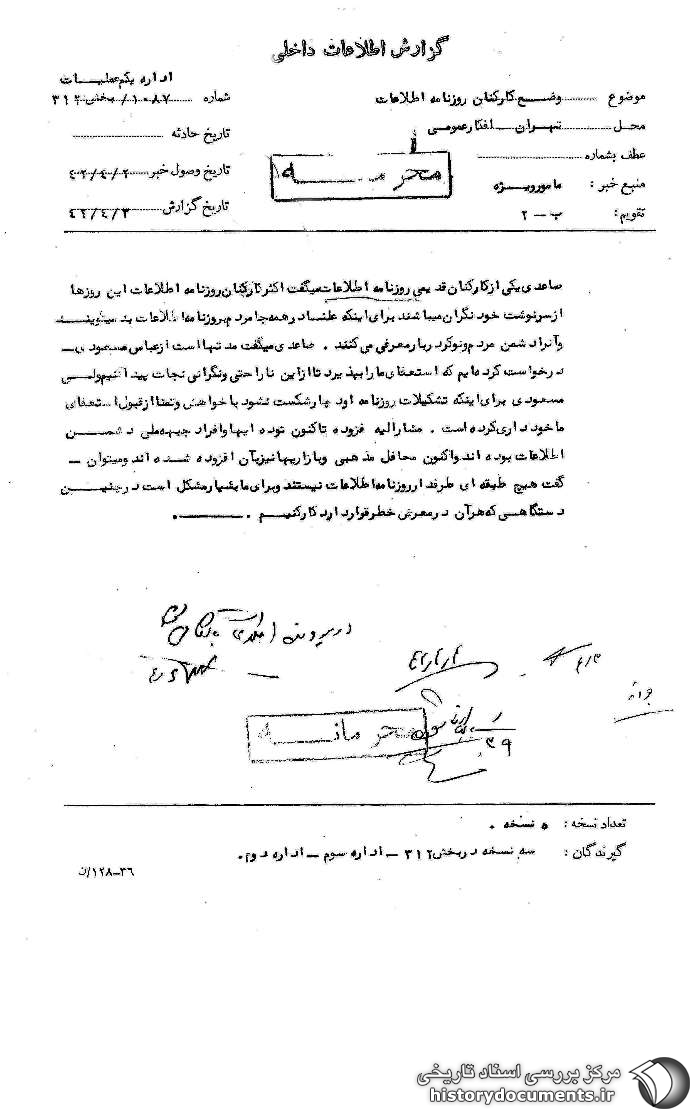 گزارش اطلاعات داخلی
اداره یکم عملیات
موضوع وضع کارکنان روزنامه اطلاعات
شماره ۱۰۸۷/بخش ۳۱۲
محل تهران افکار عمومی
تاریخ حادثه
عطف بشماره
تاریخ وصول خبر ۴۲/۴/۲
محرمانه
منبع خبر : مامور ویژه
تاریخ گزارش ۴۲/۴/۳
تقویم : ب - ۲
صاعدی یکی از کارکنان قدیمی روزنامه اطلاعات میگفت اکثر کارکنان روزنامه اطلاعات این روزها
از سرنوشت خود نگران میباشند برای اینکه علنا در همه جا مردم بروزنامه اطلاعات بد میگویند
و آنرا دشمن مردم و نوکر دربار معرفی می کنند . صاعدی میگفت مدتها است از عباس مسعودی -
درخواست کرده ایم که استعفای ما را بپذیرد تا از این ناراحتی و نگرانی نجات پیدا کنیم ولی
مسعودی برای اینکه تشکیلات روزنامه او دچار شکست نشود با خواهش و تمنا از قبول استعفای
ما خودداری کرده است . مشارالیه افزوده تاکنون توده ایها و افراد جبهه ملی دشمن
اطلاعات بوده اند و اکنون محافل مذهبی و بازاریها نیز بآن افزوده شده اند و میتوان -
گفت هیچ طبقه ای طرفدار روزنامه اطلاعات نیستند و برای ما بسیار مشکل است در چنین
دستگاهی که هر آن در معرض خطر قرار دارد کار کنیم .
محرمانه
تعداد نسخه : ۵ نسخه .
گیرندگان : سه نسخه در بخش ۳۱۲ - اداره سوم - اداره دوم .
۳۶-۱۲۸/ن
مرکز بررسی اسناد تاریخی
historydocuments.ir